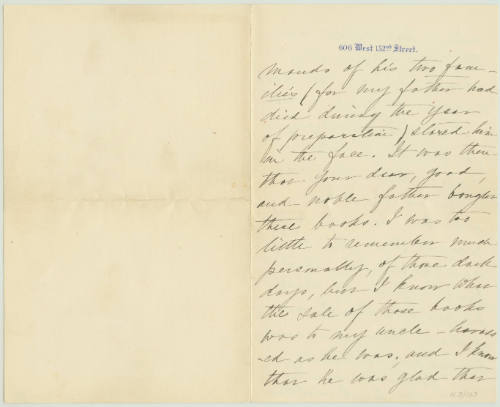 606 West 152nd Street.
mands of his two fam-
ilies (for my father had
died during the year
of preparation) stared him
in the face. It was then
that your dear, good,
and noble father bought
these books. I was too
little to remember much
personally, of those dark
days, but I know what
the sale of those books
was to my uncle - harass-
-ed as he was, and I know
that he was glad that